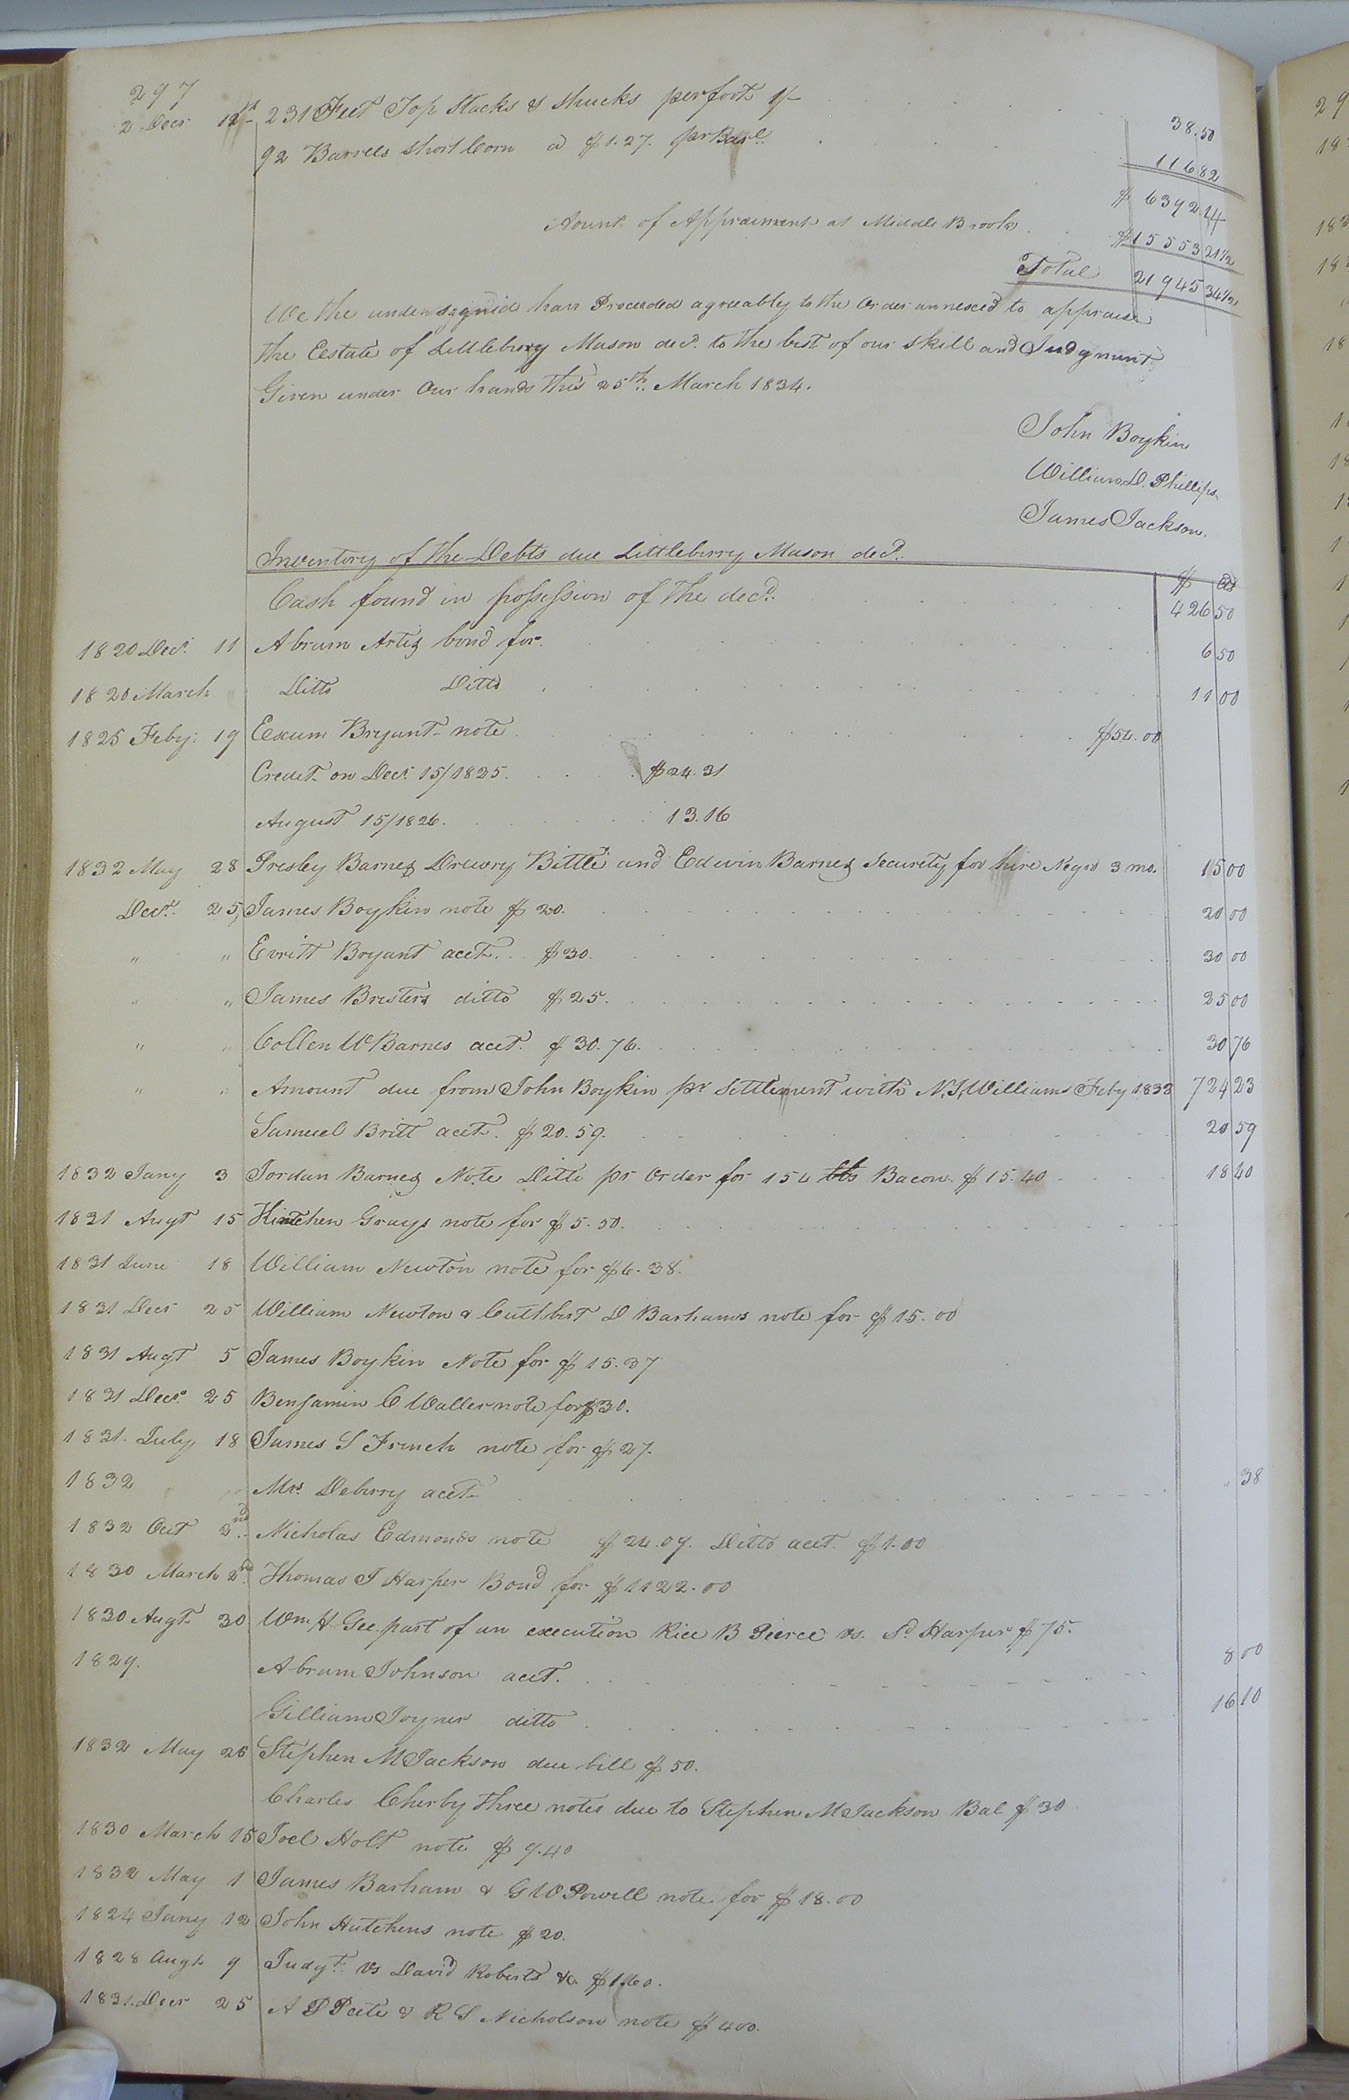 297
2 Decr 12th 231 Feet Top Stacks & Shucks per foot 1/- 38.50
92 Barrels Short Corn a $1.27. pr Barl. 116 82
$ 6392.14
Amount of Appraisment at Middle Brook $15553 21 1/2
Total 21945 34 1/2
We the undersigned have Proceeded agreeably to the Order annexed to appraise
the Eestate of Littlebury Mason decd. to the best of our skill and Judgment
Given under Our hands this 25th. March 1834.
John Boykin
William D. Phillips
James Jackson.
Inventory of the Debts due Littleberry Mason decd.
$ cts
Cash found in possession of the decd. 426 50
1820 Decr. 11 Abram Artis bond for 6 50
1820 March Ditto Ditto 11 00
1825 Feby. 19 Exum Bryant note $54.00
Credit on Decr 15/1825. $24.31
August 15/1826. 13.16
1832 May 28 Presley Barnes Drewry Bittle and Edwin Barnes Security for hire Negro 3 mo. 15 00
Decr. 25, James Boykin note $20. 20 00
" " Evritt Bryant acct. $30. 30 00
" " James Bristers ditto $25. 25 00
" " Collen W Barnes acct. $30.76. 30 76
" " Amount due from John Boykin pr Settlement with N. T. Williams Feby 1832 724 23
Samuel Britt acct. $20.59. 20 59
1832 Jany 3 Jordan Barnes Note Ditto pr Order for 154 lbs Bacon $15.40 18 40
1831 Augt 15 Kintchen Grays note for $5.50.
1831 June 18 William Newton note for $6.38.
1831 Decr 25 William Newton & Cuthbert D Barhams note for $15.00
1831 Augt 5 James Boykin Note for $15.37
1831 Decr. 25 Benjamin C Waller note for $30.
1831. July 18 James S French note for $27.
1832 Mrs. Deberry acct " 38
1832 Oct 2nd. Nicholas Edmonds note $24.09. Ditto acct. $1.00
1830 March 2nd Thomas J Harper Bond for $1122.00
1830 Augt 30 Wm H Gee part of an execution Rice B Pierce vs. Sd. Harper $75.
1829. Abram Johnson acct. 8 00
Gilliam Joyner ditto 16 10
1832 May 26 Stephen M Jackson due bill $50.
Charles Cherby three notes due to Stephen M Jackson Bal $30
1830 March 15 Joel Holt note $9.40
1832 May 1 James Barham & G W Powell note for $18.00
1824 Jany 12 John Hutchens note $20.
1828 Augt 9 Judgt. vs David Roberts &c. $160.
1831. Decr 25 A P Peete & R S Nicholson note $400.